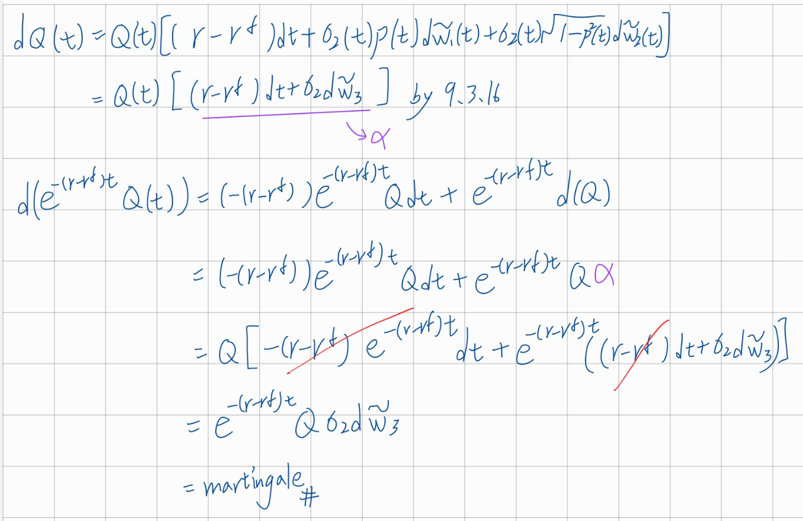 dQ(t) = Q(t)[(r-r^f)dt + σ₂(t)ρ(t)dw̃₁(t) + σ₂(t)√(1-ρ²(t))dw̃₂(t)]
= Q(t)[(r-r^f)dt + σ₂dw̃₃] by 9.3.16
→ α
d(e^{-(r-r^f)t}Q(t)) = (-(r-r^f))e^{-(r-r^f)t}Qdt + e^{-(r-r^f)t}d(Q)
= (-(r-r^f))e^{-(r-r^f)t}Qdt + e^{-(r-r^f)t}Qα
= Q[-(r-r^f)e^{-(r-r^f)t}dt + e^{-(r-r^f)t}((r-r^f)dt + σ₂dw̃₃)]
= e^{-(r-r^f)t}Qσ₂dw̃₃
= martingale #